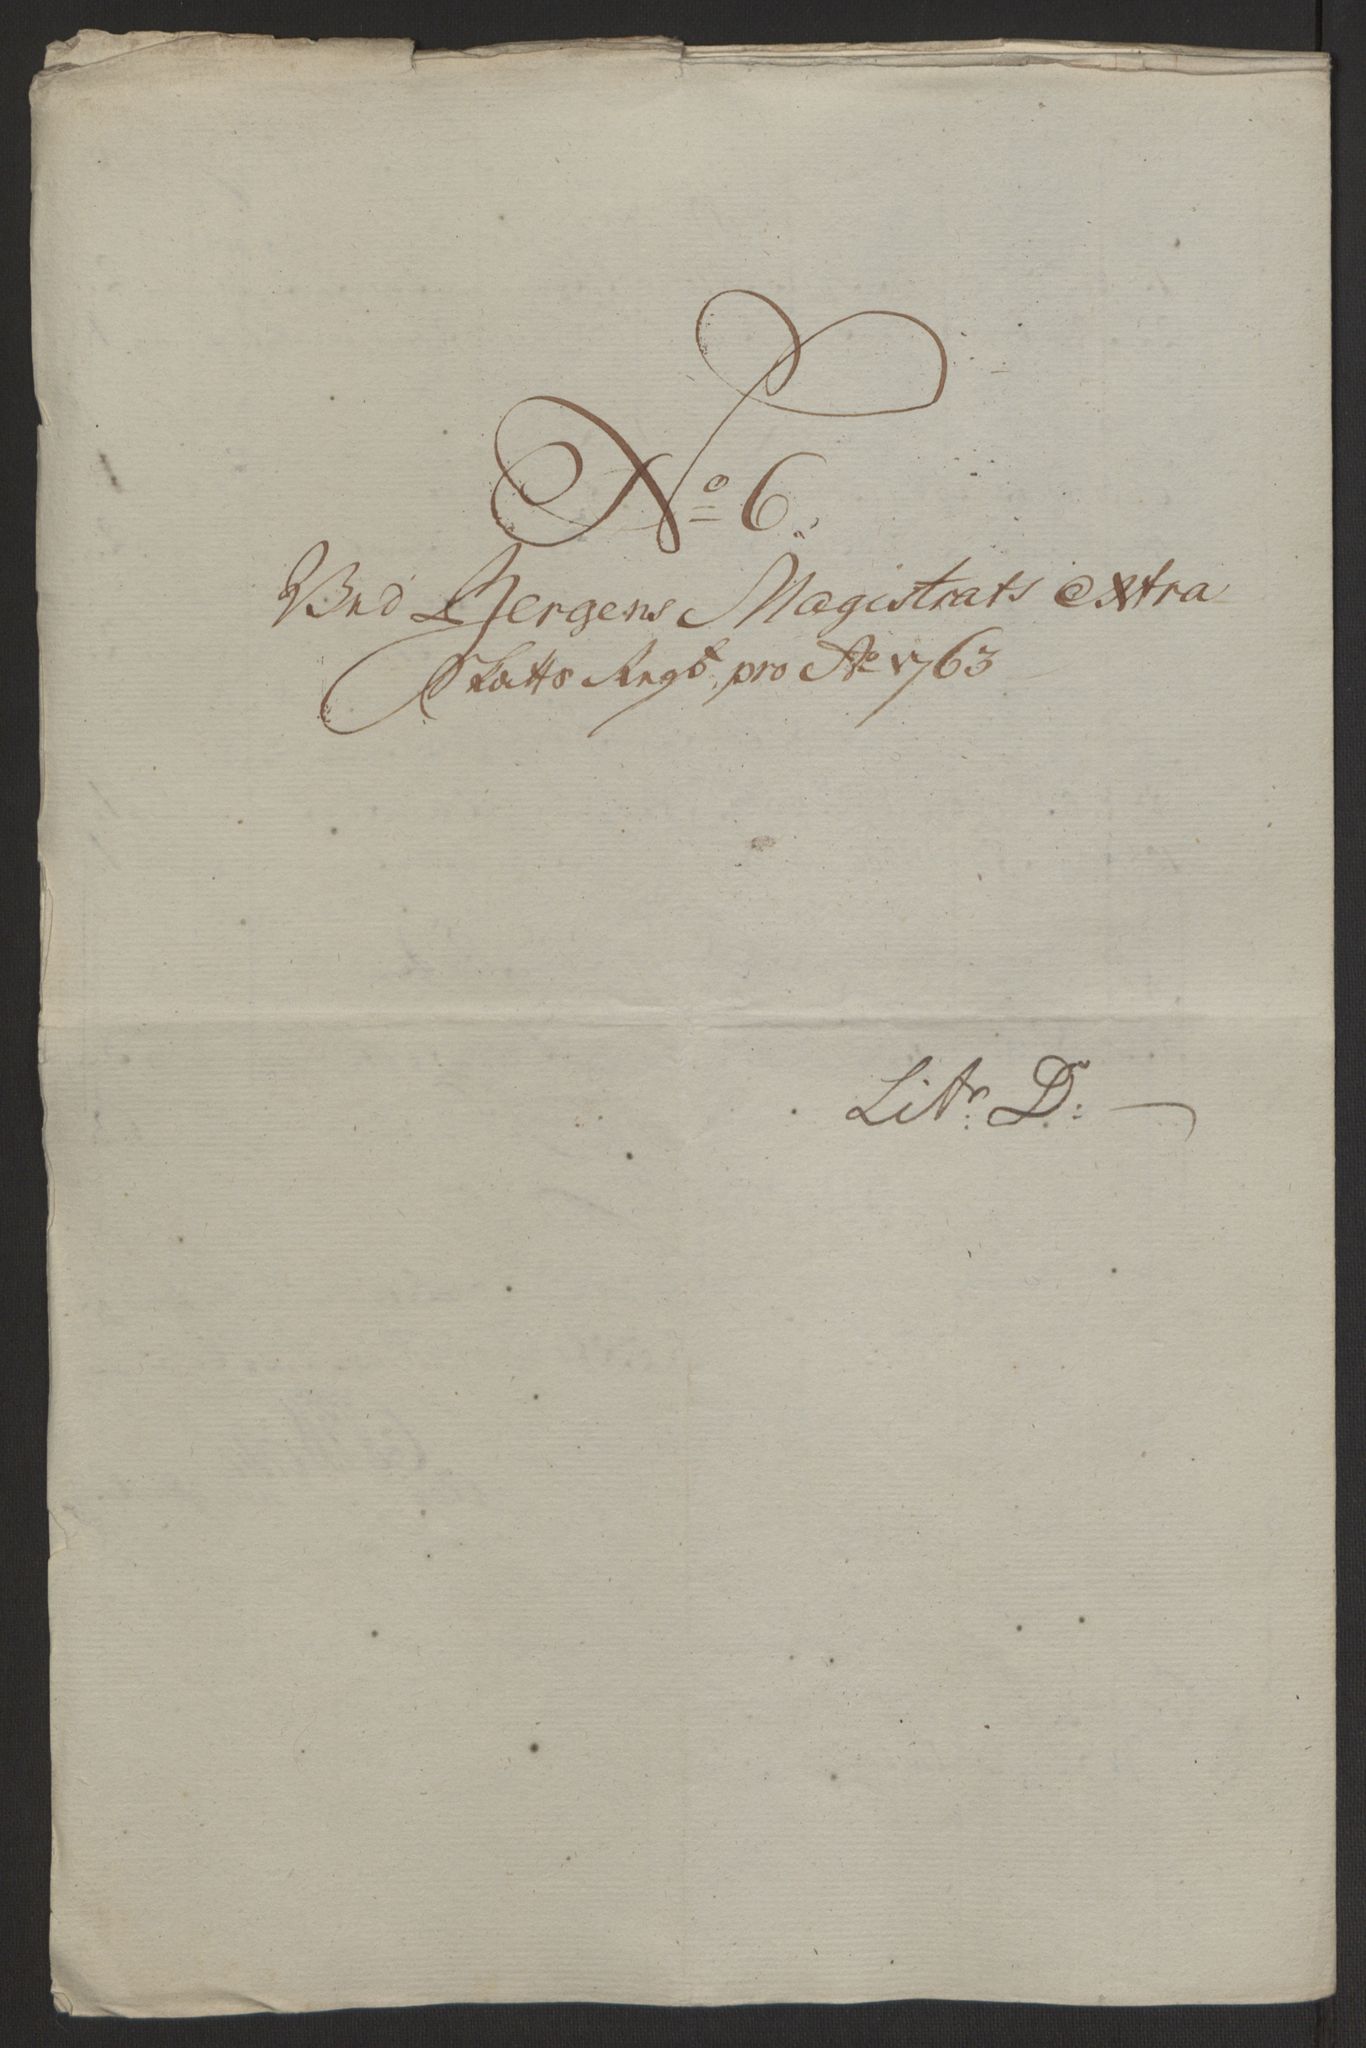 No 6.
Ved Bergens Magistrats extra
Skatts Regs. pro Ao 1763
Litr. D: